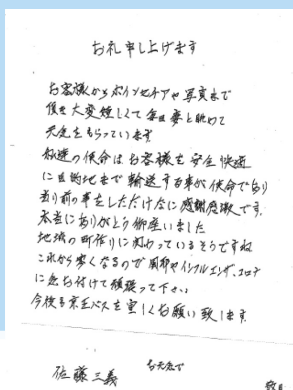 お礼申し上げます
お客様からポインセチアや写真まで
大変嬉しくて毎日妻と眺めて
元気をもらっています
私達の使命はお客様を安全快適
に目的地まで輸送する事が使命であり
当り前の事をしただけなに感謝感激です
本当にありがとう御座いました
地域の町作りに関わっているそうですね
これから寒くなるので風邪やインフルエンザ、コロナ
に気お付けて頑張って下さい
今後も京王バスを宜しくお願い致します
お元気で
佐藤三義
敬具